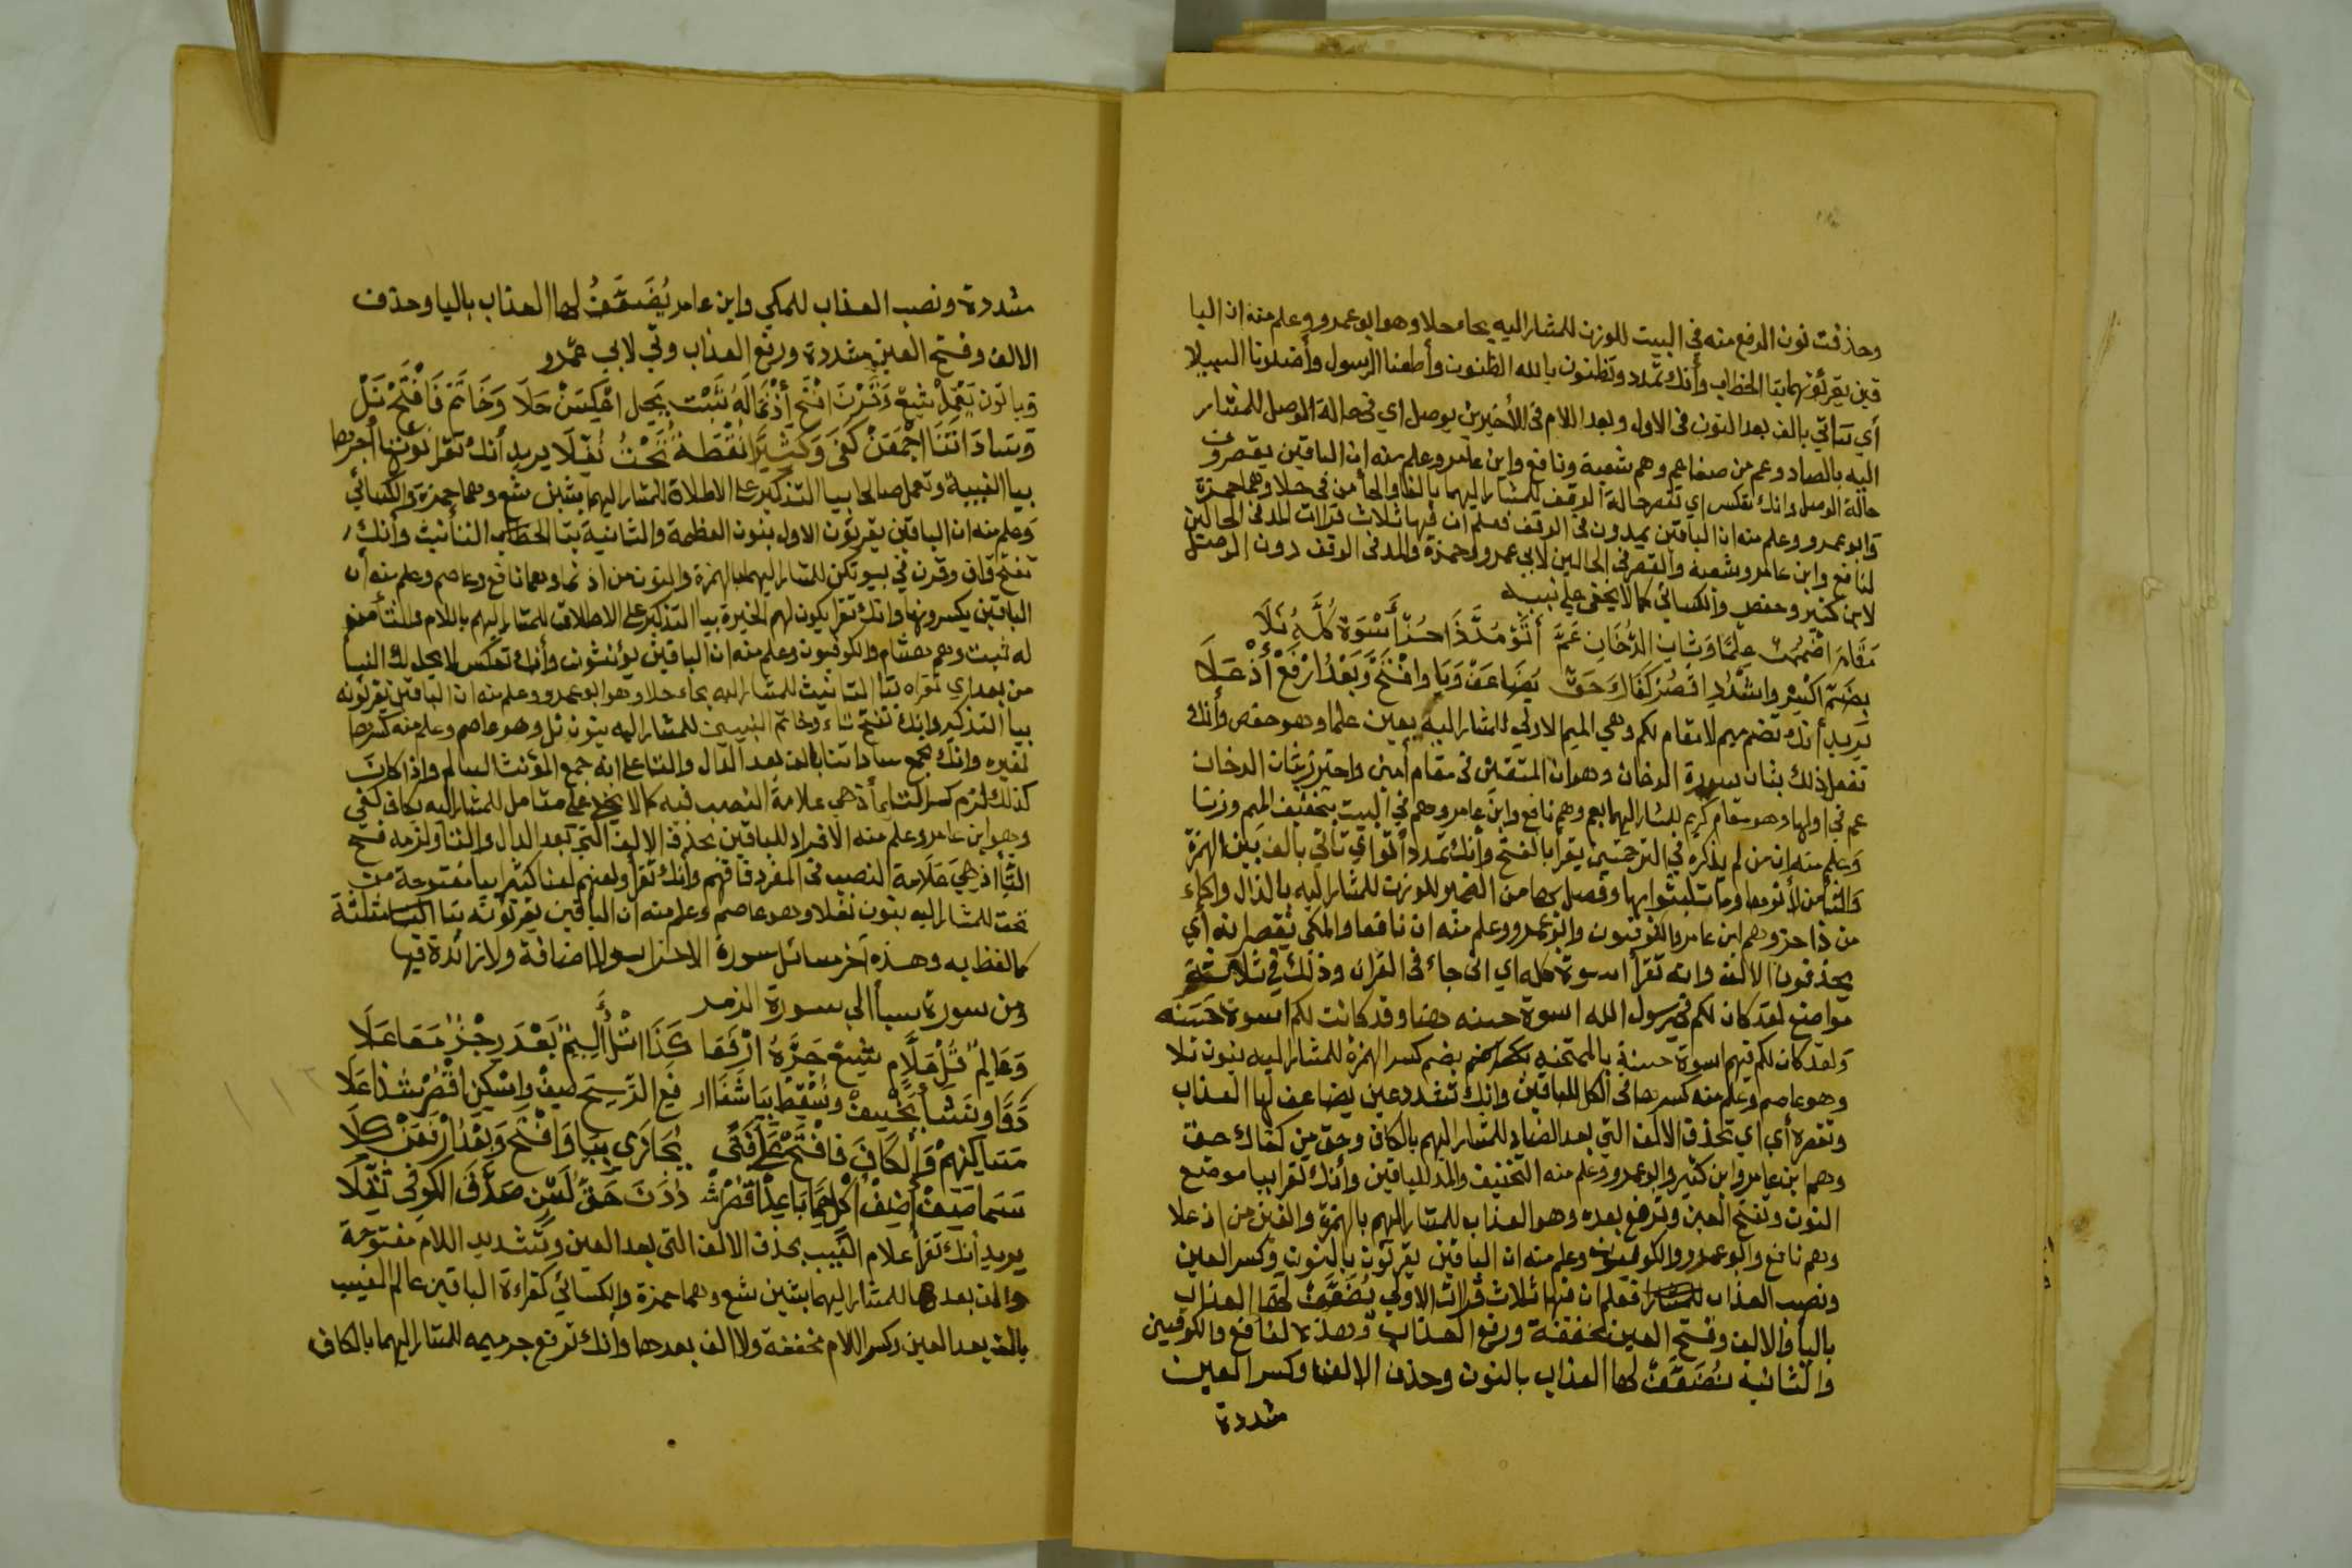 وحذفت نون الرفع منه في البيت للوزن للمشار اليه بحاء حلا وهو ابو عمرو وعلم منه ان البا
قين يقرئونهما بتا الخطاب وأنك تمدد وتظنون بالله الظنون وأطعنا الرسول وأضلونا السبيلا
أي تتأتي بالف بعد النون في الاول وبعد اللام في الأخيرين بوصل اي في حالة الوصل للمشار
اليه بالصاد وعم من صفا عم وهم شعبة ونافع وابن عامر وعلم منه ان الباقين يقصرون
حالة الوصل وانك تعكس اي تقصر حالة الوقف للمشار اليهما بالفا والحا من في حلا وهما حمزة
وابو عمرو وعلم منه ان الباقين يمدون في الوقف فعلم ان فيها ثلاث قرات المد في الحالين
لنافع وابن عامر وشعبة والقصر في الحالين لابي عمرو وحمزة والمد في الوقف دون الوصل
لابن كثير وحفص والكسائي كما لا يخفى علي نبيه
مَقَامَ اضْمُمَنْ عِلْمًا وَثَانِ الدُّخَانِ عَمَّ أَتَوْ مُدَّ ذَا حُزْ أُسْوَةٌ كُلَّهُ نَلَا
بِضَمّ اكْسِرٍ واشْدُدِ اقْصُرْ كَفَاكَ حَقّ يُضَاعَفْ وَيَا وافْتَحْ وَبَعْدُ ارْفَعْ أُذْ عَلَا
يريد أنك تضم ميم لا مقام لكم وهي الميم الاولي للمشار اليه بعين علما وهو حفص وأنك
تفعل ذلك بثان سورة الدخان وهو ان المتقين في مقام أمين واحترز بثان الدخان
عم في اولها وهو مقام كريم للمشار اليهما بعم وهم نافع وابن عامر وهم في البيت بتخفيف الميم وزنا
وعلم منه ان من لم يذكره في الترجمتين يقرأ بالفتح وأنك تمدد أتوا اي تأتي بالف بين الهمزة
والتا من لأتوها وما تلبثوا بها وفصل بها من الضمير للوزن للمشار اليه بالذال والحاء
من ذا حز وهم ابن عامر والكوفيون وابو عمرو وعلم منه ان نافعا والمكي يقصرانه أي
يحذفون الالف وانه تقرأ اسوة كله اي اني جاء في القران وذلك في ثلاثة
مواضع لقد كان لكم في رسول الله اسوة حسنه هنا وقد كانت لكم اسوة حسنه
ولقد كان لكم فيهم اسوة حسنة بالممتحنه بضم كسر الهمزة للمشار اليه بنون نلا
وهو عاصم وعلم منه كسرها في الكل للباقين وانك تشدد عين يضاعف لها العذاب
وتقصره أي اي تحذف الالف التي بعد الضاد للمشار اليهم بالكاف وحق من كفاك حق
وهم ابن عامر وابن كثير وابو عمرو وعلم منه التخفيف والمد للباقين وأنك تقرا بيا موضع
النون وتفتح العين وترفع بعده وهو العذاب للمشار اليهم بالهمزة والعين من اذ علا
وهم نافع وابو عمرو والكوفيون وعلم منه ان الباقين يقرئون بالنون وكسر العين
ونصب العذاب فعلم ان فيها ثلاث قرات الاولي يُضَعَّفْ لها العذاب
باليا والالف وفتح العين مخففة ورفع العذاب وهذه لنافع والكوفيين
والثانية نُضَعِّفْ لها العذاب بالنون وحذف الالف وكسر العين
مشددة
مشددة ونصب العذاب للمكي وابن عامر يُضَعَّفُ لها العذاب باليا وحذف
الالف وفتح العين مشددة ورفع العذاب وفي لابي عمرو
وَيَا نُون يَعْمَلْ شِيعْ وَقَرْنَ افْتَحْ أُذْ نَمَا لَهُ ثَبْت يَحِل اعْكِسَنْ حَلَا وَخَاتَمَ فَافْتَحْ نَلْ
وَسَادَاتِنَا اجْمَعَنْ كَفَى وَكَثِيرًا نُقْطَةٌ تَحْتُ نُفِّلَا يريد أنك تقرا نؤتها أجرها
بيا الغيبة وتعمل صالحا بيا التذكير علي الاطلاق للمشار اليهما بشين شع وهما حمزة والكسائي
وعلم منه ان الباقين يقرئون الاول بنون العظمة والثانية بتا التأنيث وأنك
تفتح قاف وقرن في بيوتكن للمشار اليهما بالهمزة والنون من اذ نما وهما نافع وعاصم وعلم منه أن
الباقين يكسرونها وانك تقرا يكون لهم الخيرة بيا التذكير علي الاطلاق للمشار اليهم باللام والثا من
له ثبت وهم هشام والكوفيون وعلم منه ان الباقين يؤنثون وأنك تعكس لا يحل لك النسا
من بعد اي تقراه بتا التانيث للمشار اليه بحاء حلا وهو ابو عمرو وعلم منه ان الباقين يقرئونه
بيا التذكير وانك تفتح تاء وخاتم النبيين للمشار اليه بنون نل وهو عاصم وعلم منه كسرها
لغيره وانك تجمع ساداتنا بالف بعد الدال والتا علي انه جمع المؤنث السالم واذا كان
كذلك لزم كسر التا اذ هي علامة النصب فيه كما لا يخفي علي متامل للمشار اليه بكاف كفى
وهو ابن عامر وعلم منه الافراد للباقين بحذف الالف التي بعد الدال والتا ولزمه فتح
التا اذ هي علامة النصب في المفرد فافهم وأنك تقرأ والعنهم لعنا كبيرا ببا مفتوحة من
تحت للمشار اليه بنون نفلا وهو عاصم وعلم منه ان الباقين يقرئونه بتا مثلثة
كما لفظ به وهذه آخر مسائل سورة الاحزاب ولا اضافة ولا زائدة فيها
ومن سورة سبأ الي سورة الزمر
وَعَالِمُ قُلْ عَلَّامِ شِيعْ جَرَّهُ ارْفَعَا كَذَا اتْلُ أَلِيمٍ بَعْدَ رِجْزٍ مَعًا عَلَا
دَوَّا وَنَشَأْ نَخْسِفْ وَنُسْقِطْ بِيَا شَفَا ارفع الريح صِفْ واسكن اقصر شذا علا
مَسَاكِنِهِمْ وَالكَافَ فَافْتَحْ عَلَى فَتًى يُجَازَى بِيَا وَافْتَحْ وَبَعْدُ ارْفَعَنْ كِلَا
سَمَا صِفْ أضِفْ أُكْلٍ حِمًا بَاعِد اقْصُرْ شدُدَنَ حَقّ لسن صَدَّقَ الكوفي ثَقَّلَا
يريد أنك تقرأ علام الغيب بحذف الالف التي بعد العين وتشديد اللام مفتوحة
والف بعدها للمشار اليهما بشين شع وهما حمزة والكسائي كقراءة الباقين عالم الغيب
بالف بعد العين وكسر اللام مخففة ولا الف بعدها وأنك ترفع جر ميمه للمشار اليهما بالكاف